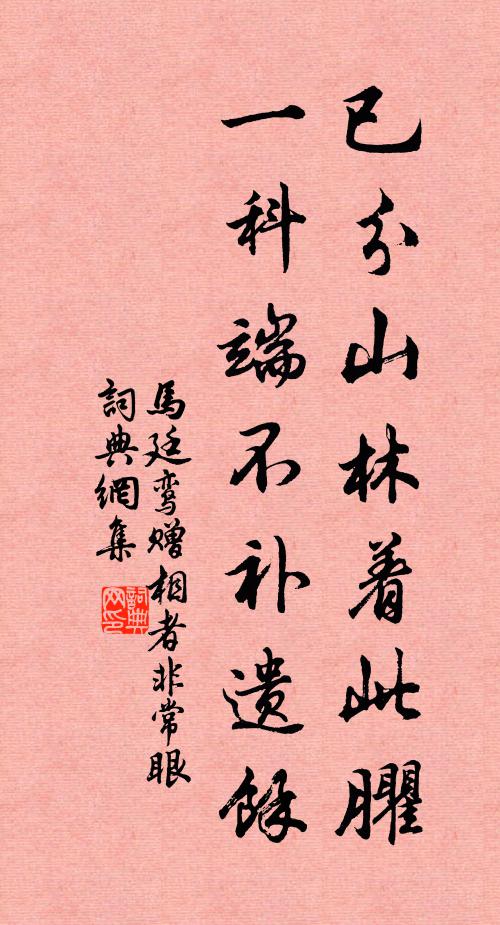 已分山林着此臞
一科端不补遗馀
馬廷鸾赠相者非常眼
詞典網集
詞典网印